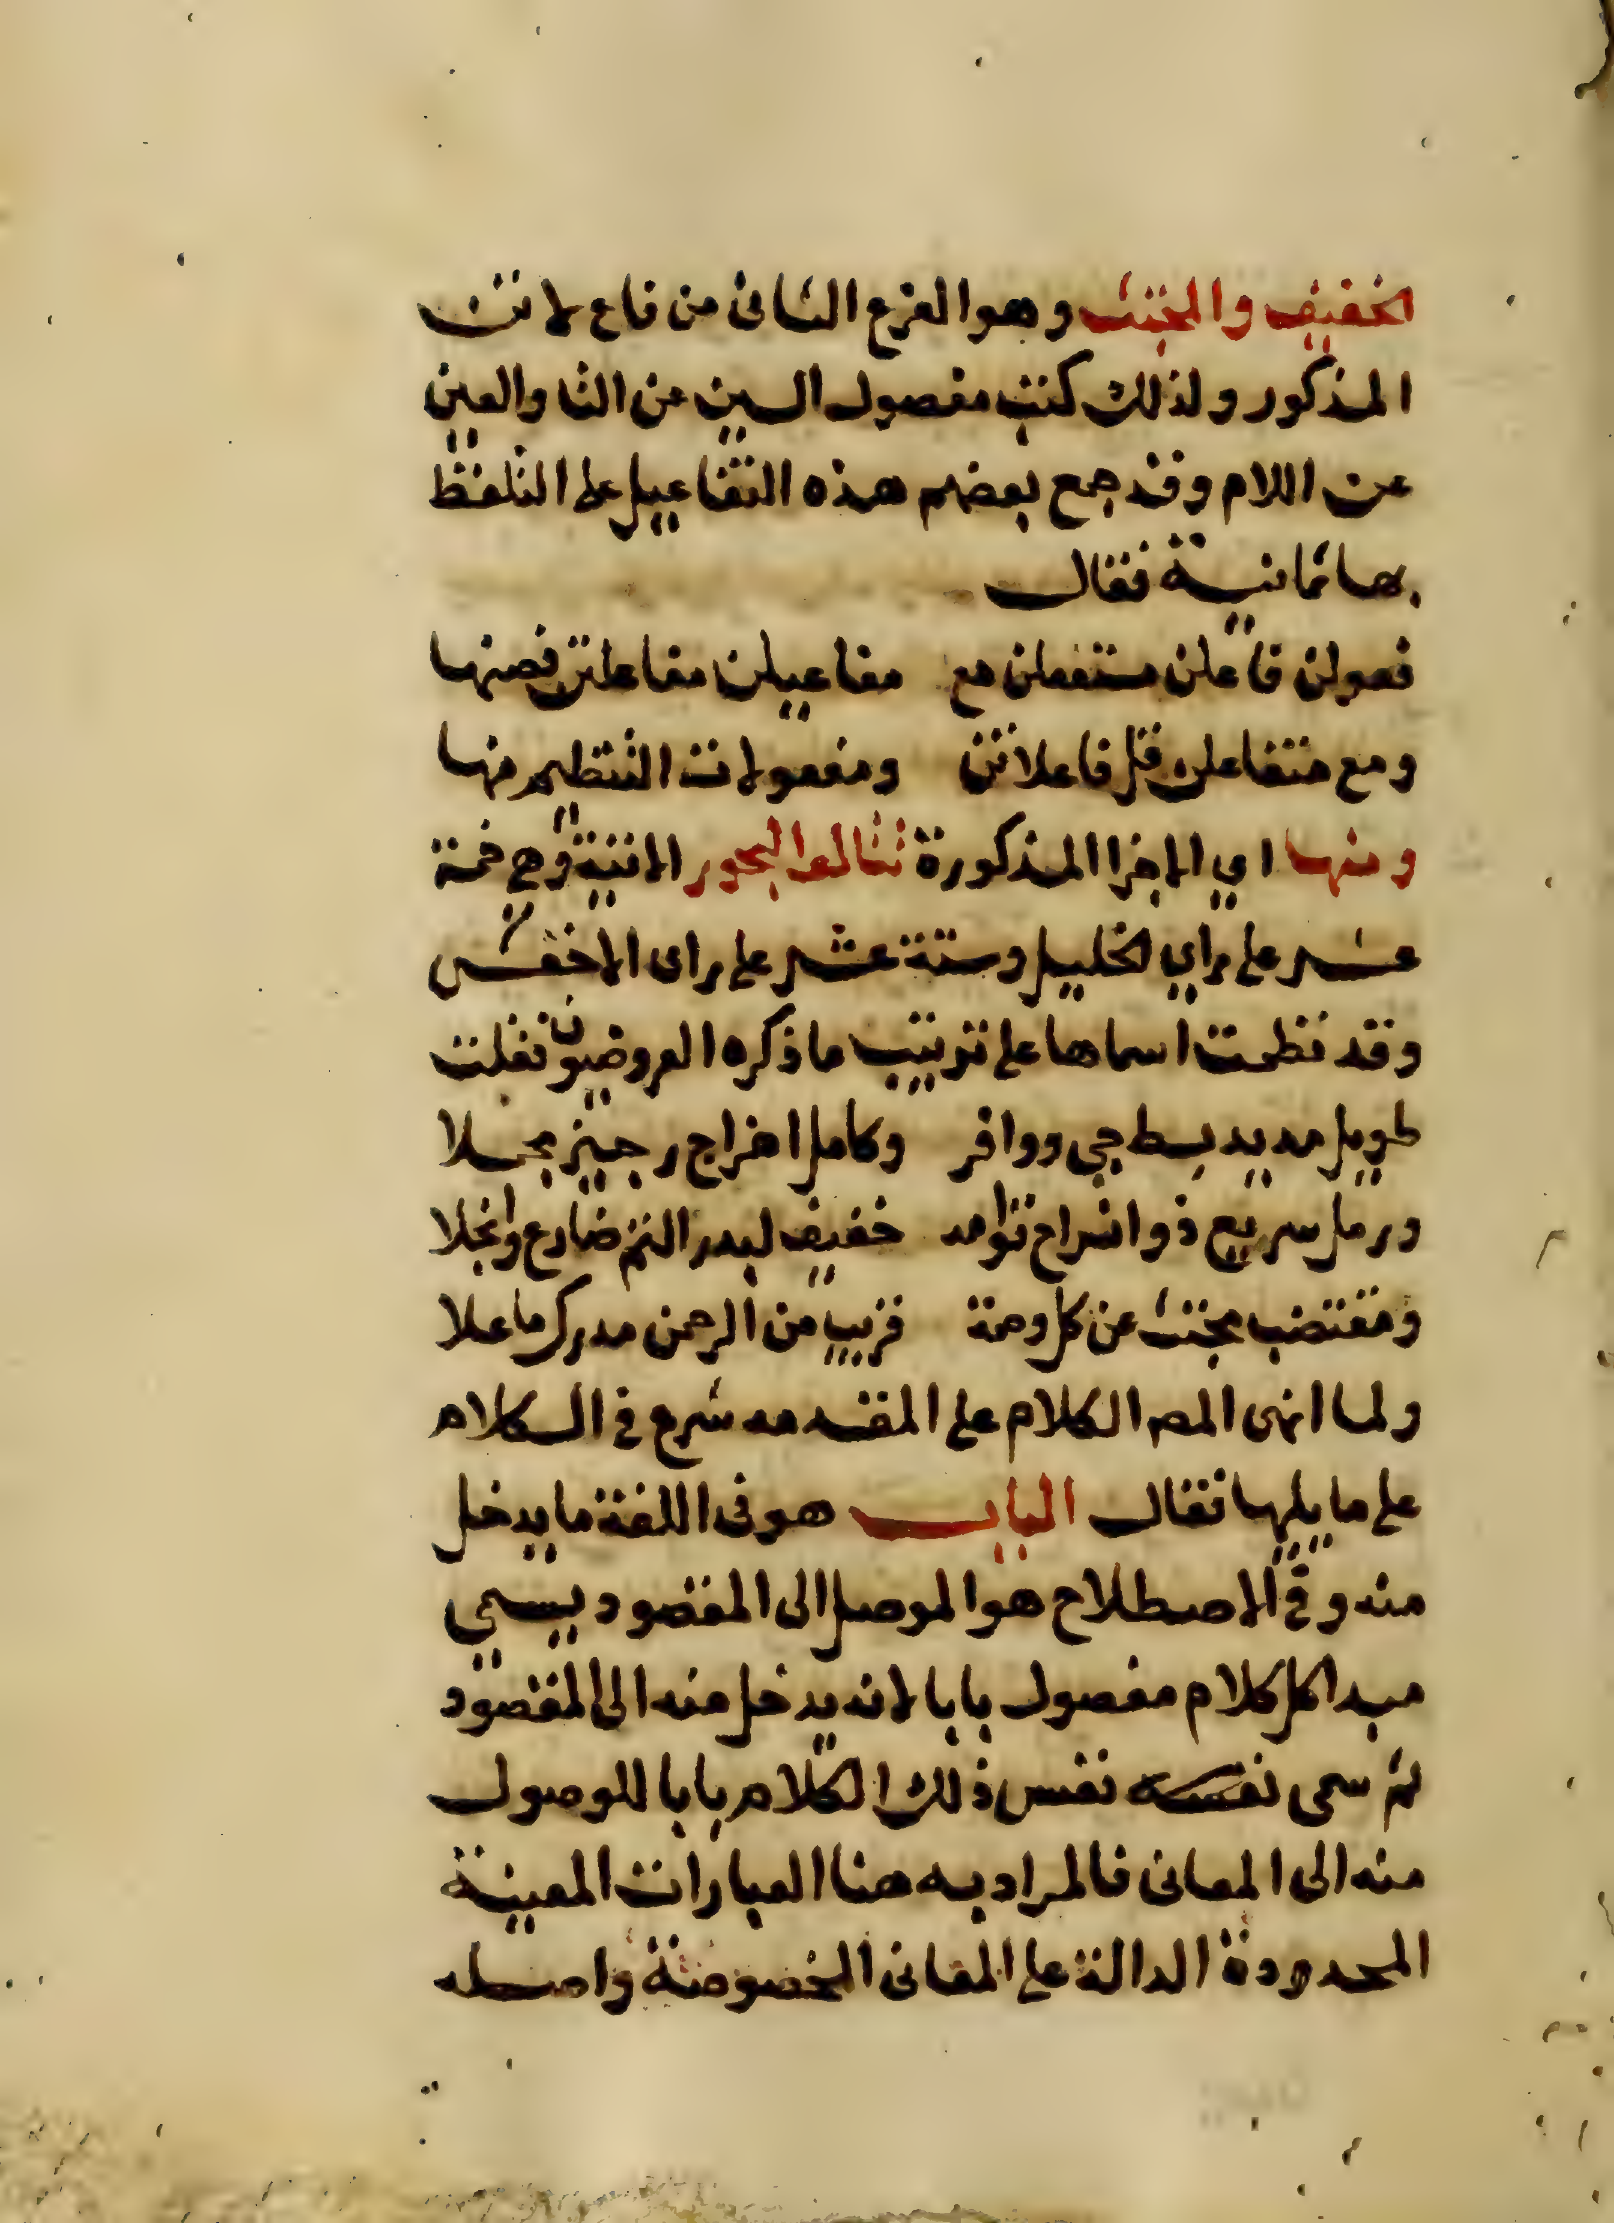 الخفيف والمجتث وهو الفرع الثانى من فاع لاتن
المذكور ولذلك كتب مفصول السين عن التا والعين
عن اللام وقد جمع بعضهم هذه التفاعيل على التلفظ
بها ثمانية فقال
فعولن فاعلن مستفعلن مع مفاعيلن مفاعلتن فصنها
ومع متفاعلن قل فاعلاتن ومفعولات التنظيم منها
ومنها اي الاجزا المذكورة تتالف البحور الاتية وهي خمسة
عشر على راي الخليل وستة عشر على راى الاخفش
وقد نظمت اسماها على ترتيب ما ذكره العروضيون فقلت
طويل مديد بسط جى ووافر وكامل اهزاج رجيز بجلا
ورمل سريع ذو انسراح تواهد خفيف لبدر التم ضارع وانجلا
ومقتضب مجتث عن كل وصمة قريب من الرحمن مدرك ما علا
ولما انهى المصـ الكلام على المقدمه شرع في الكلام
على ما يليها فقال الباب هو فى اللغة ما يدخل
منه وفي الاصطلاح هو الموصل الى المقصود يسمي
مبدا كل كلام مفصول بابا لانه يدخل منه الى المقصود
ثم سمى نفسه نفس ذلك الكلام بابا للوصول
منه الى المعانى فالمراد به هنا العبارات المعينة
المحدودة الدالة على المعانى المخصوصة واصله